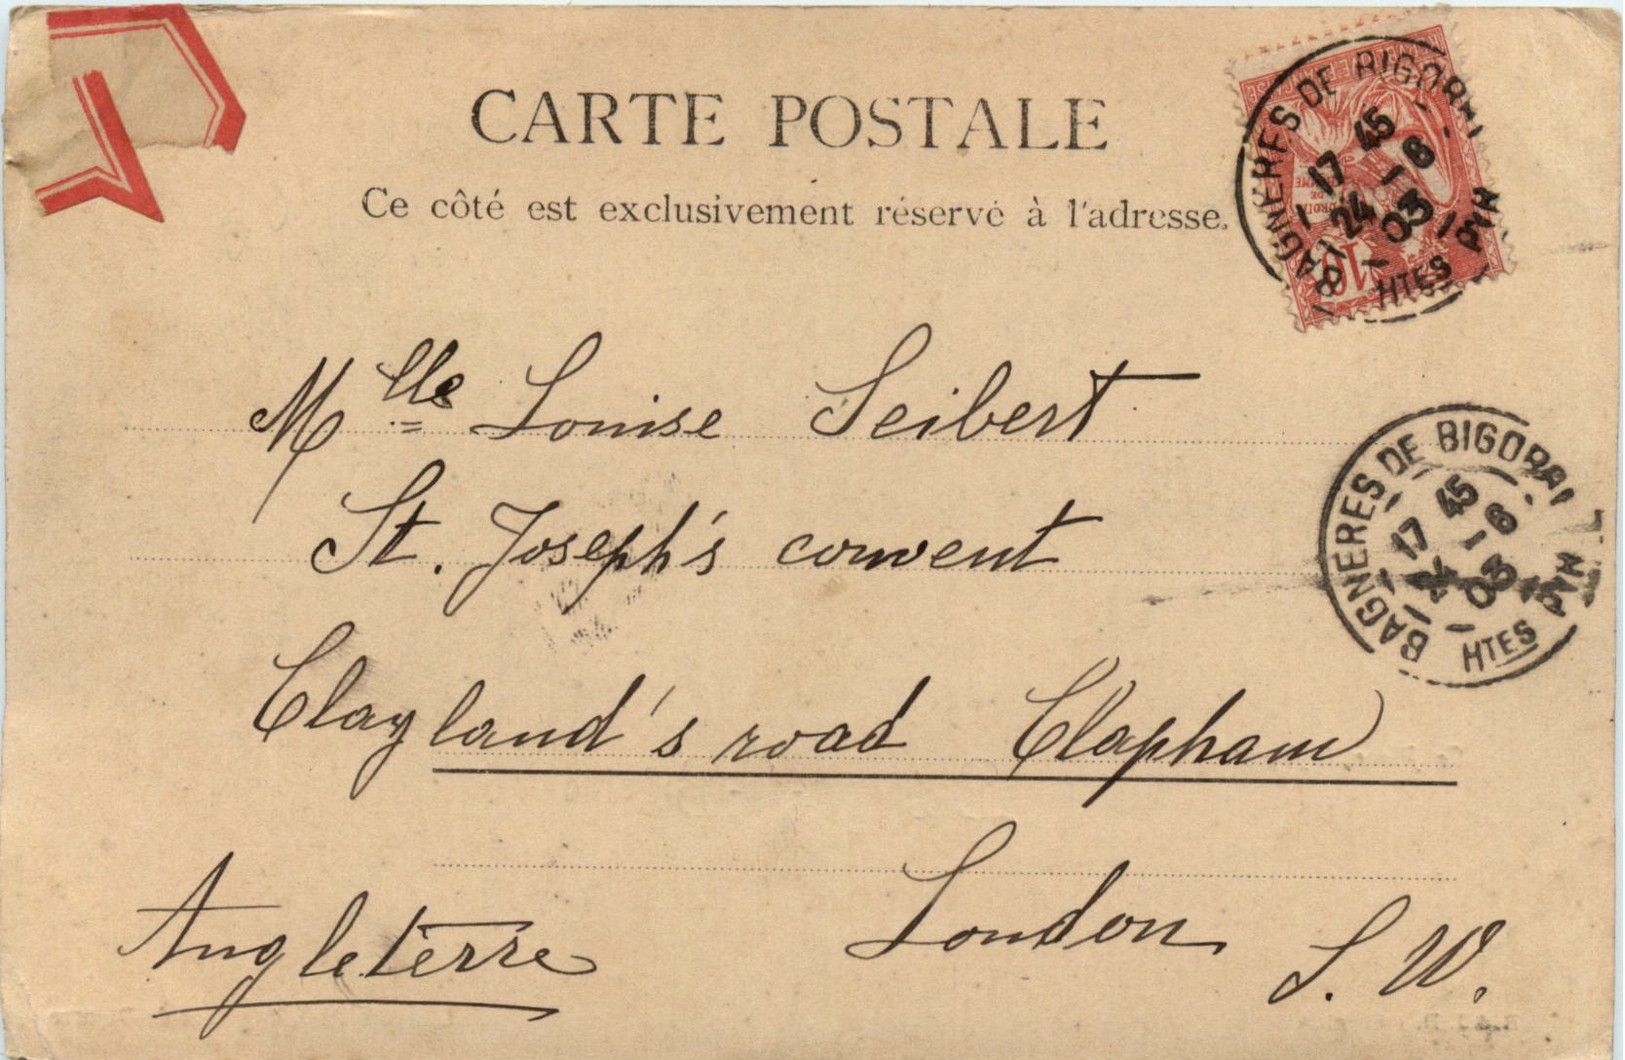 CARTE POSTALE
Ce côté est exclusivement réservé à l'adresse.
BAGNERES DE BIGORRE
17 45
24 - 8
03
HTES PYR
10
Mlle Louise Seibert
St. Joseph's convent
BAGNERES DE BIGORRE
17 45
24 - 8
03
HTES PYR
Clayland's road Clapham
London S. W.
Angleterre